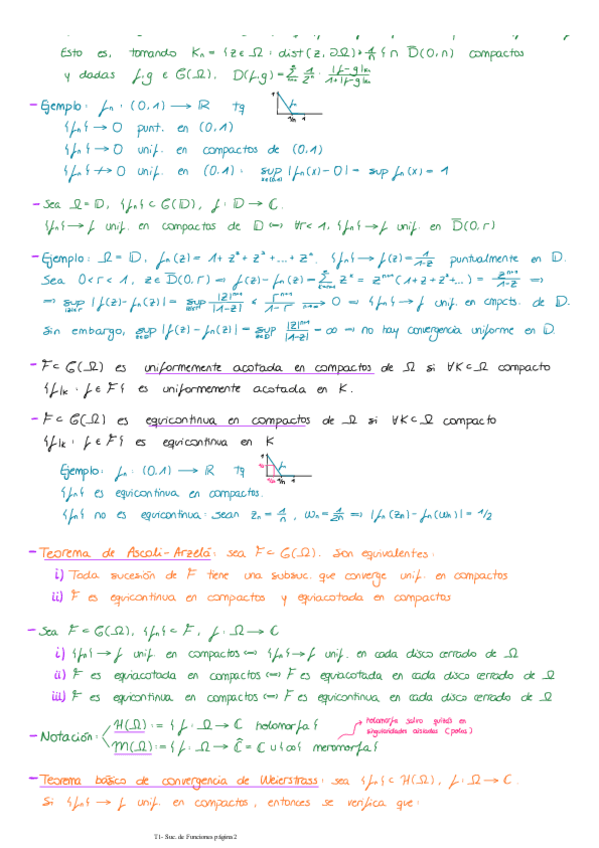 Esto es, tomando Kₙ = {z ∈ Ω : dist(z, ∂Ω) ≥ 1/n} ∩ D̄(0,n) compactos
y dadas f,g ∈ G(Ω), D(f,g) = Σ 1/2ⁿ · |f-g|ₖₙ / 1+|f-g|ₖₙ
- Ejemplo: fₙ : (0,1) → ℝ tq
1
1/n 1
{fₙ} → 0 punt. en (0,1)
{fₙ} → 0 unif. en compactos de (0,1)
{fₙ} ↛ 0 unif. en (0,1) : sup |fₙ(x) - 0| = sup fₙ(x) = 1
- Sea Ω = 𝔻, {fₙ} ⊂ G(𝔻), f : 𝔻 → ℂ.
{fₙ} → f unif. en compactos de 𝔻 ⟺ ∀r < 1, {fₙ} → f unif. en D̄(0,r)
- Ejemplo: Ω = 𝔻, fₙ(z) = 1 + z + z² + ... + zⁿ. {fₙ} → f(z) = 1/1-z puntualmente en 𝔻.
Sea 0 < r < 1, z ∈ D̄(0,r) ⟹ f(z) - fₙ(z) = Σ zᵏ = zⁿ⁺¹(1 + z + z² + ...) = zⁿ⁺¹/1-z ⟹
⟹ sup |f(z) - fₙ(z)| = sup |z|ⁿ⁺¹/|1-z| ≤ rⁿ⁺¹/1-r → 0 ⟹ {fₙ} → f unif. en cmpcts. de 𝔻.
Sin embargo, sup |f(z) - fₙ(z)| = sup |z|ⁿ⁺¹/|1-z| = ∞ ⟹ no hay convergencia uniforme en 𝔻.
- F ⊂ G(Ω) es uniformemente acotada en compactos de Ω si ∀K ⊂ Ω compacto
{f|ₖ : f ∈ F} es uniformemente acotada en K.
- F ⊂ G(Ω) es equicontinua en compactos de Ω si ∀K ⊂ Ω compacto
{f|ₖ : f ∈ F} es equicontinua en K
Ejemplo: fₙ : (0,1) → ℝ tq
{fₙ} es equicontinua en compactos.
{fₙ} no es equicontinua: sean zₙ = 1/n, wₙ = 1/2n ⟹ |fₙ(zₙ) - fₙ(wₙ)| = 1/2
- Teorema de Ascoli-Arzelá: sea F ⊂ G(Ω). Son equivalentes:
i) Toda sucesión de F tiene una subsuc. que converge unif. en compactos
ii) F es equicontinua en compactos y equiacotada en compactos
- Sea F ⊂ G(Ω), {fₙ} ⊂ F, f : Ω → ℂ
i) {fₙ} → f unif. en compactos ⟺ {fₙ} → f unif. en cada disco cerrado de Ω
ii) F es equiacotada en compactos ⟺ F es equiacotada en cada disco cerrado de Ω
iii) F es equicontinua en compactos ⟺ F es equicontinua en cada disco cerrado de Ω
- Notación: H(Ω) := {f : Ω → ℂ holomorfa}
M(Ω) := {f : Ω → Ĉ = ℂ ∪ {∞} meromorfa}
holomorfa salvo quizás en
singularidades aisladas (polos)
- Teorema básico de convergencia de Weierstrass: sea {fₙ} ⊂ H(Ω), f : Ω → ℂ.
Si {fₙ} → f unif. en compactos, entonces se verifica que:
T1- Suc. de Funciones página 2